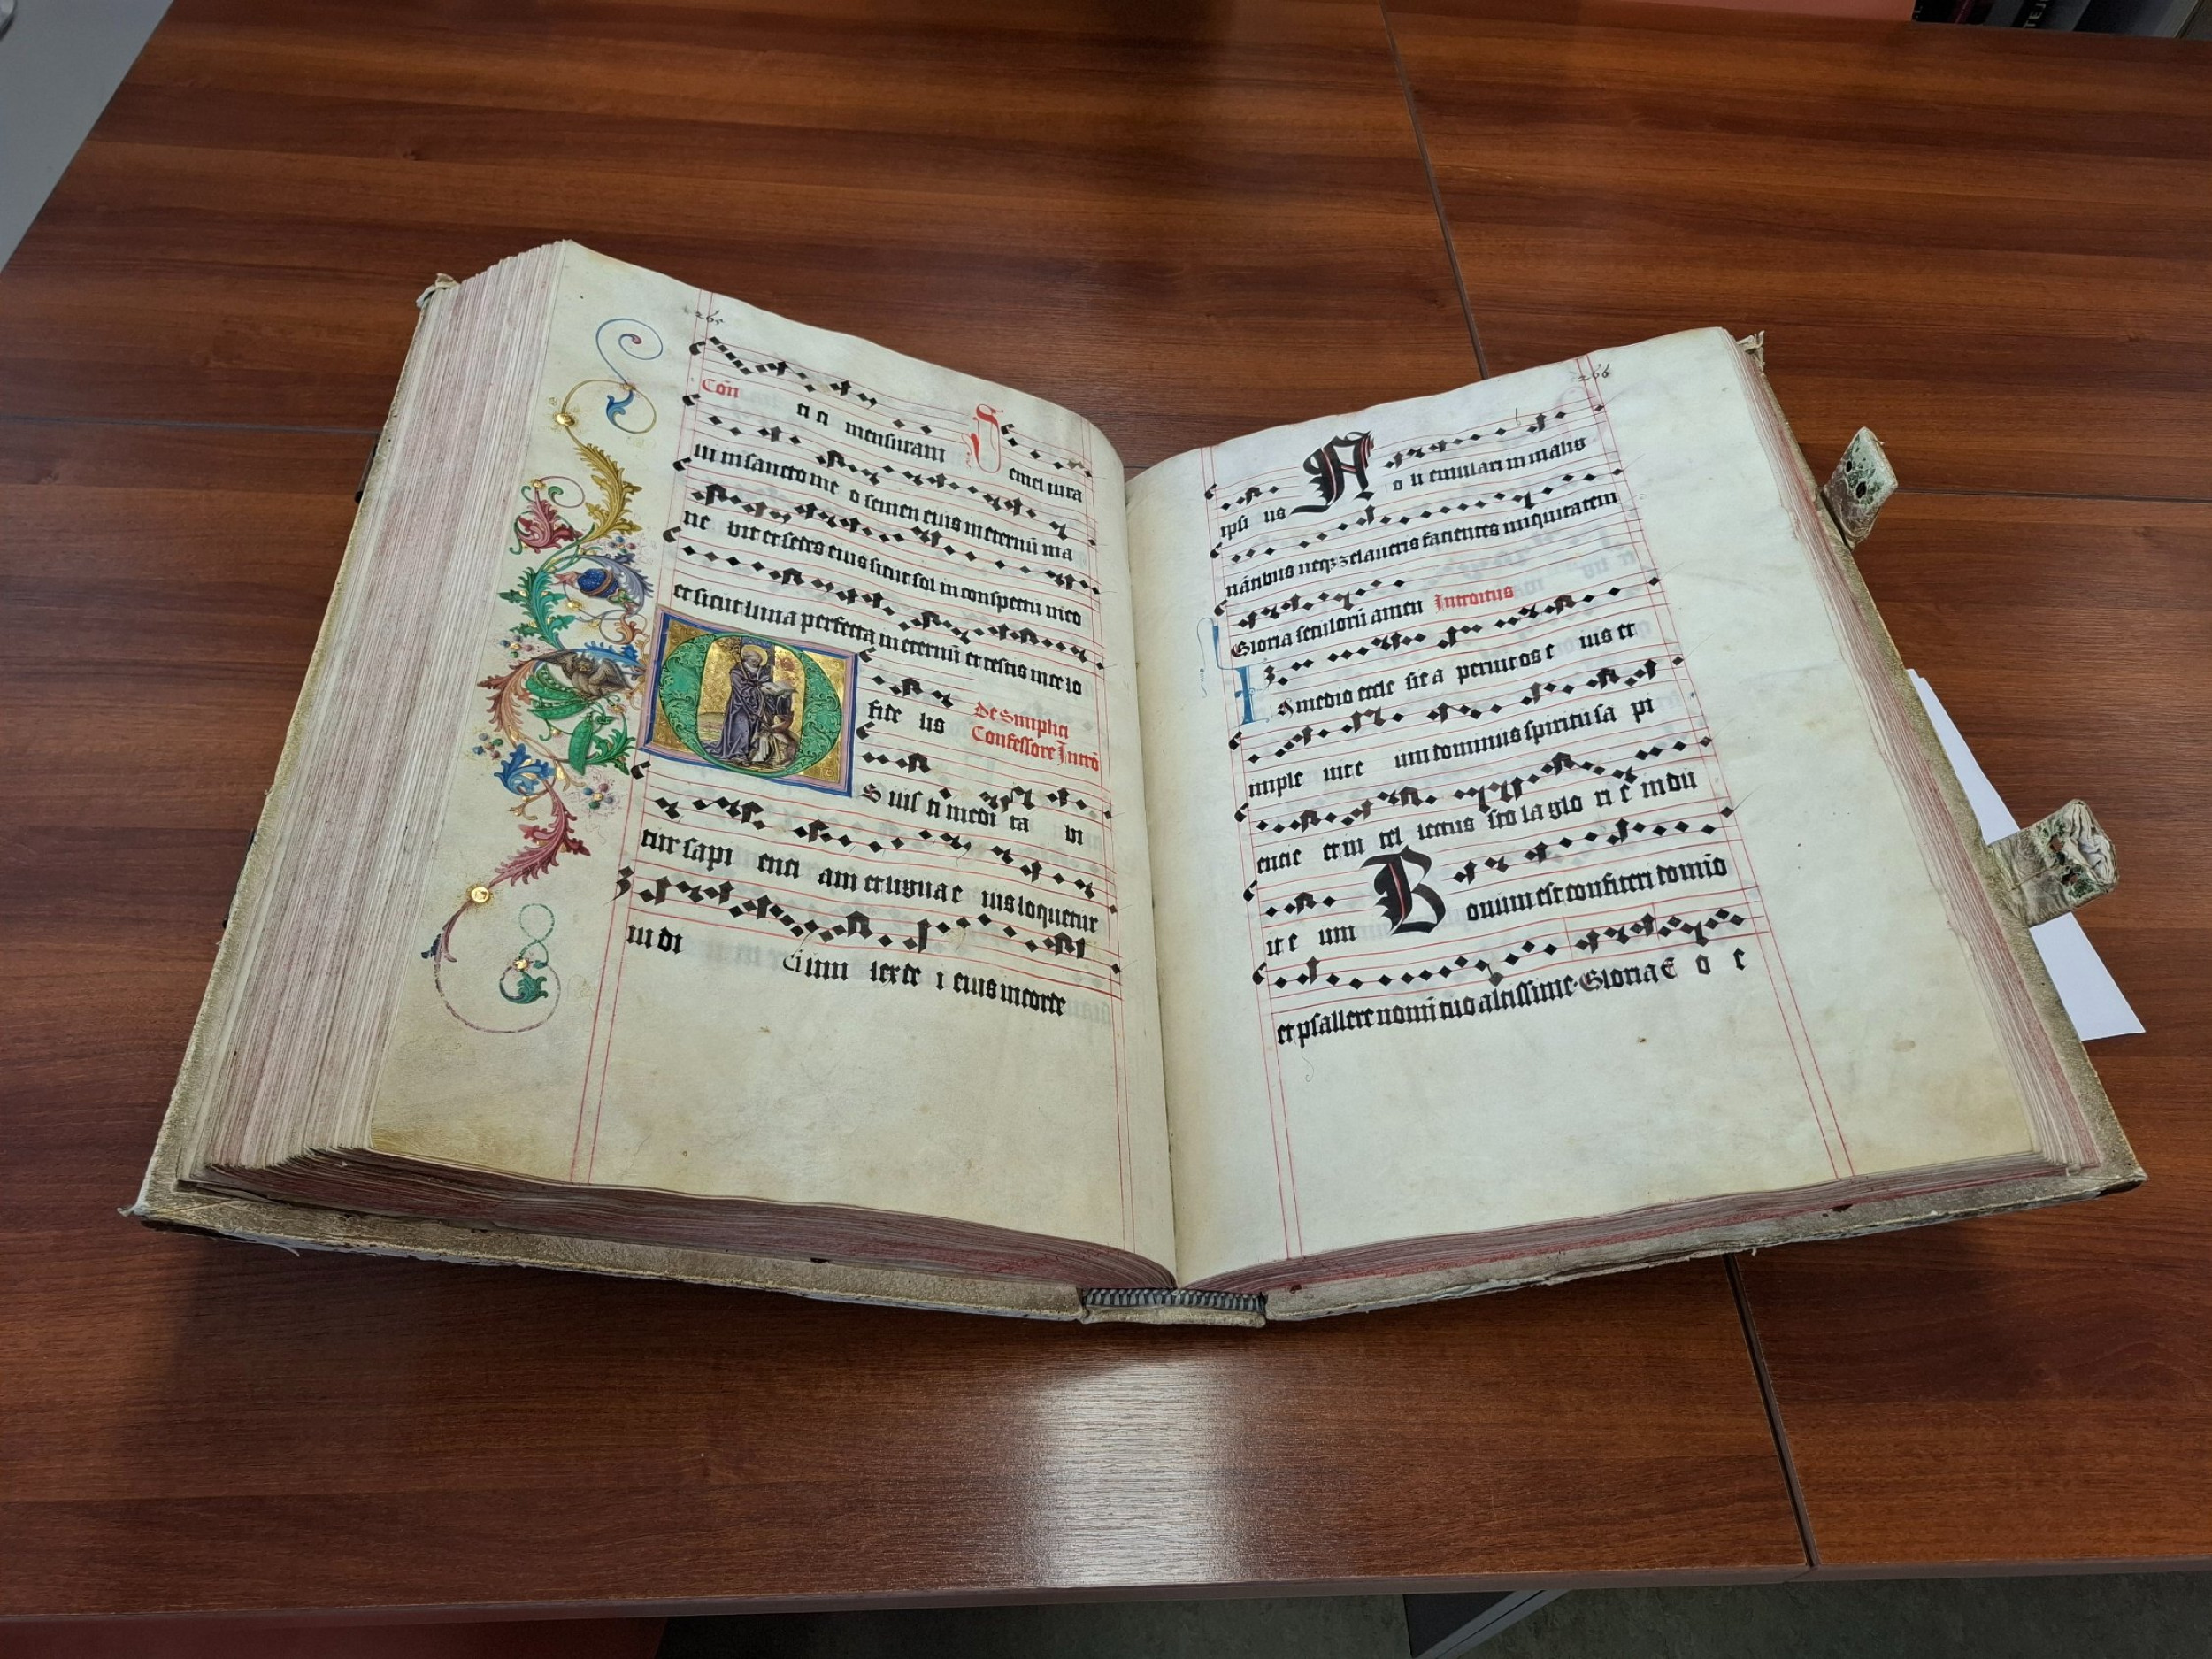 265
Con
ti ci mensuram Semel iura
ui in sancto me o semen eius in eternū ma
ne bit et sedes eius sicut sol in conspectu meo
et sicut luna perfecta in eternū et testis in celo
fide lis De Simplici
Confessore Intro
O S iusti medi ta bi
tur sapi enti am et lingua e ius loquetur
iu di cium lex de i eius in corde
266
ipsi us No li emulari in malig
nātibus neqȝ zelaueris facientes iniquitatem
Gloria seculorū amen Introitus
In medio eccle sie a peruit os e ius et
imple uit e um dominus spiritu sa pi
entie et in tel lectus sto la glo ri e indu
it e um Bonum est confiteri domīo
et psallere nomī tuo altissime Gloria E o e